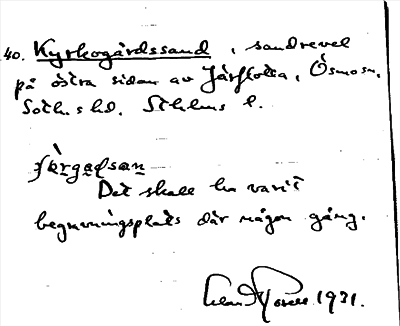 40. Kyrkogårdssand, sandrevel
på östra sidan av Järflotta, Ösmo sn,
Soth. shd. Sthlms l.
Det skall ha varit
begravningsplats där någon gång.
1931.